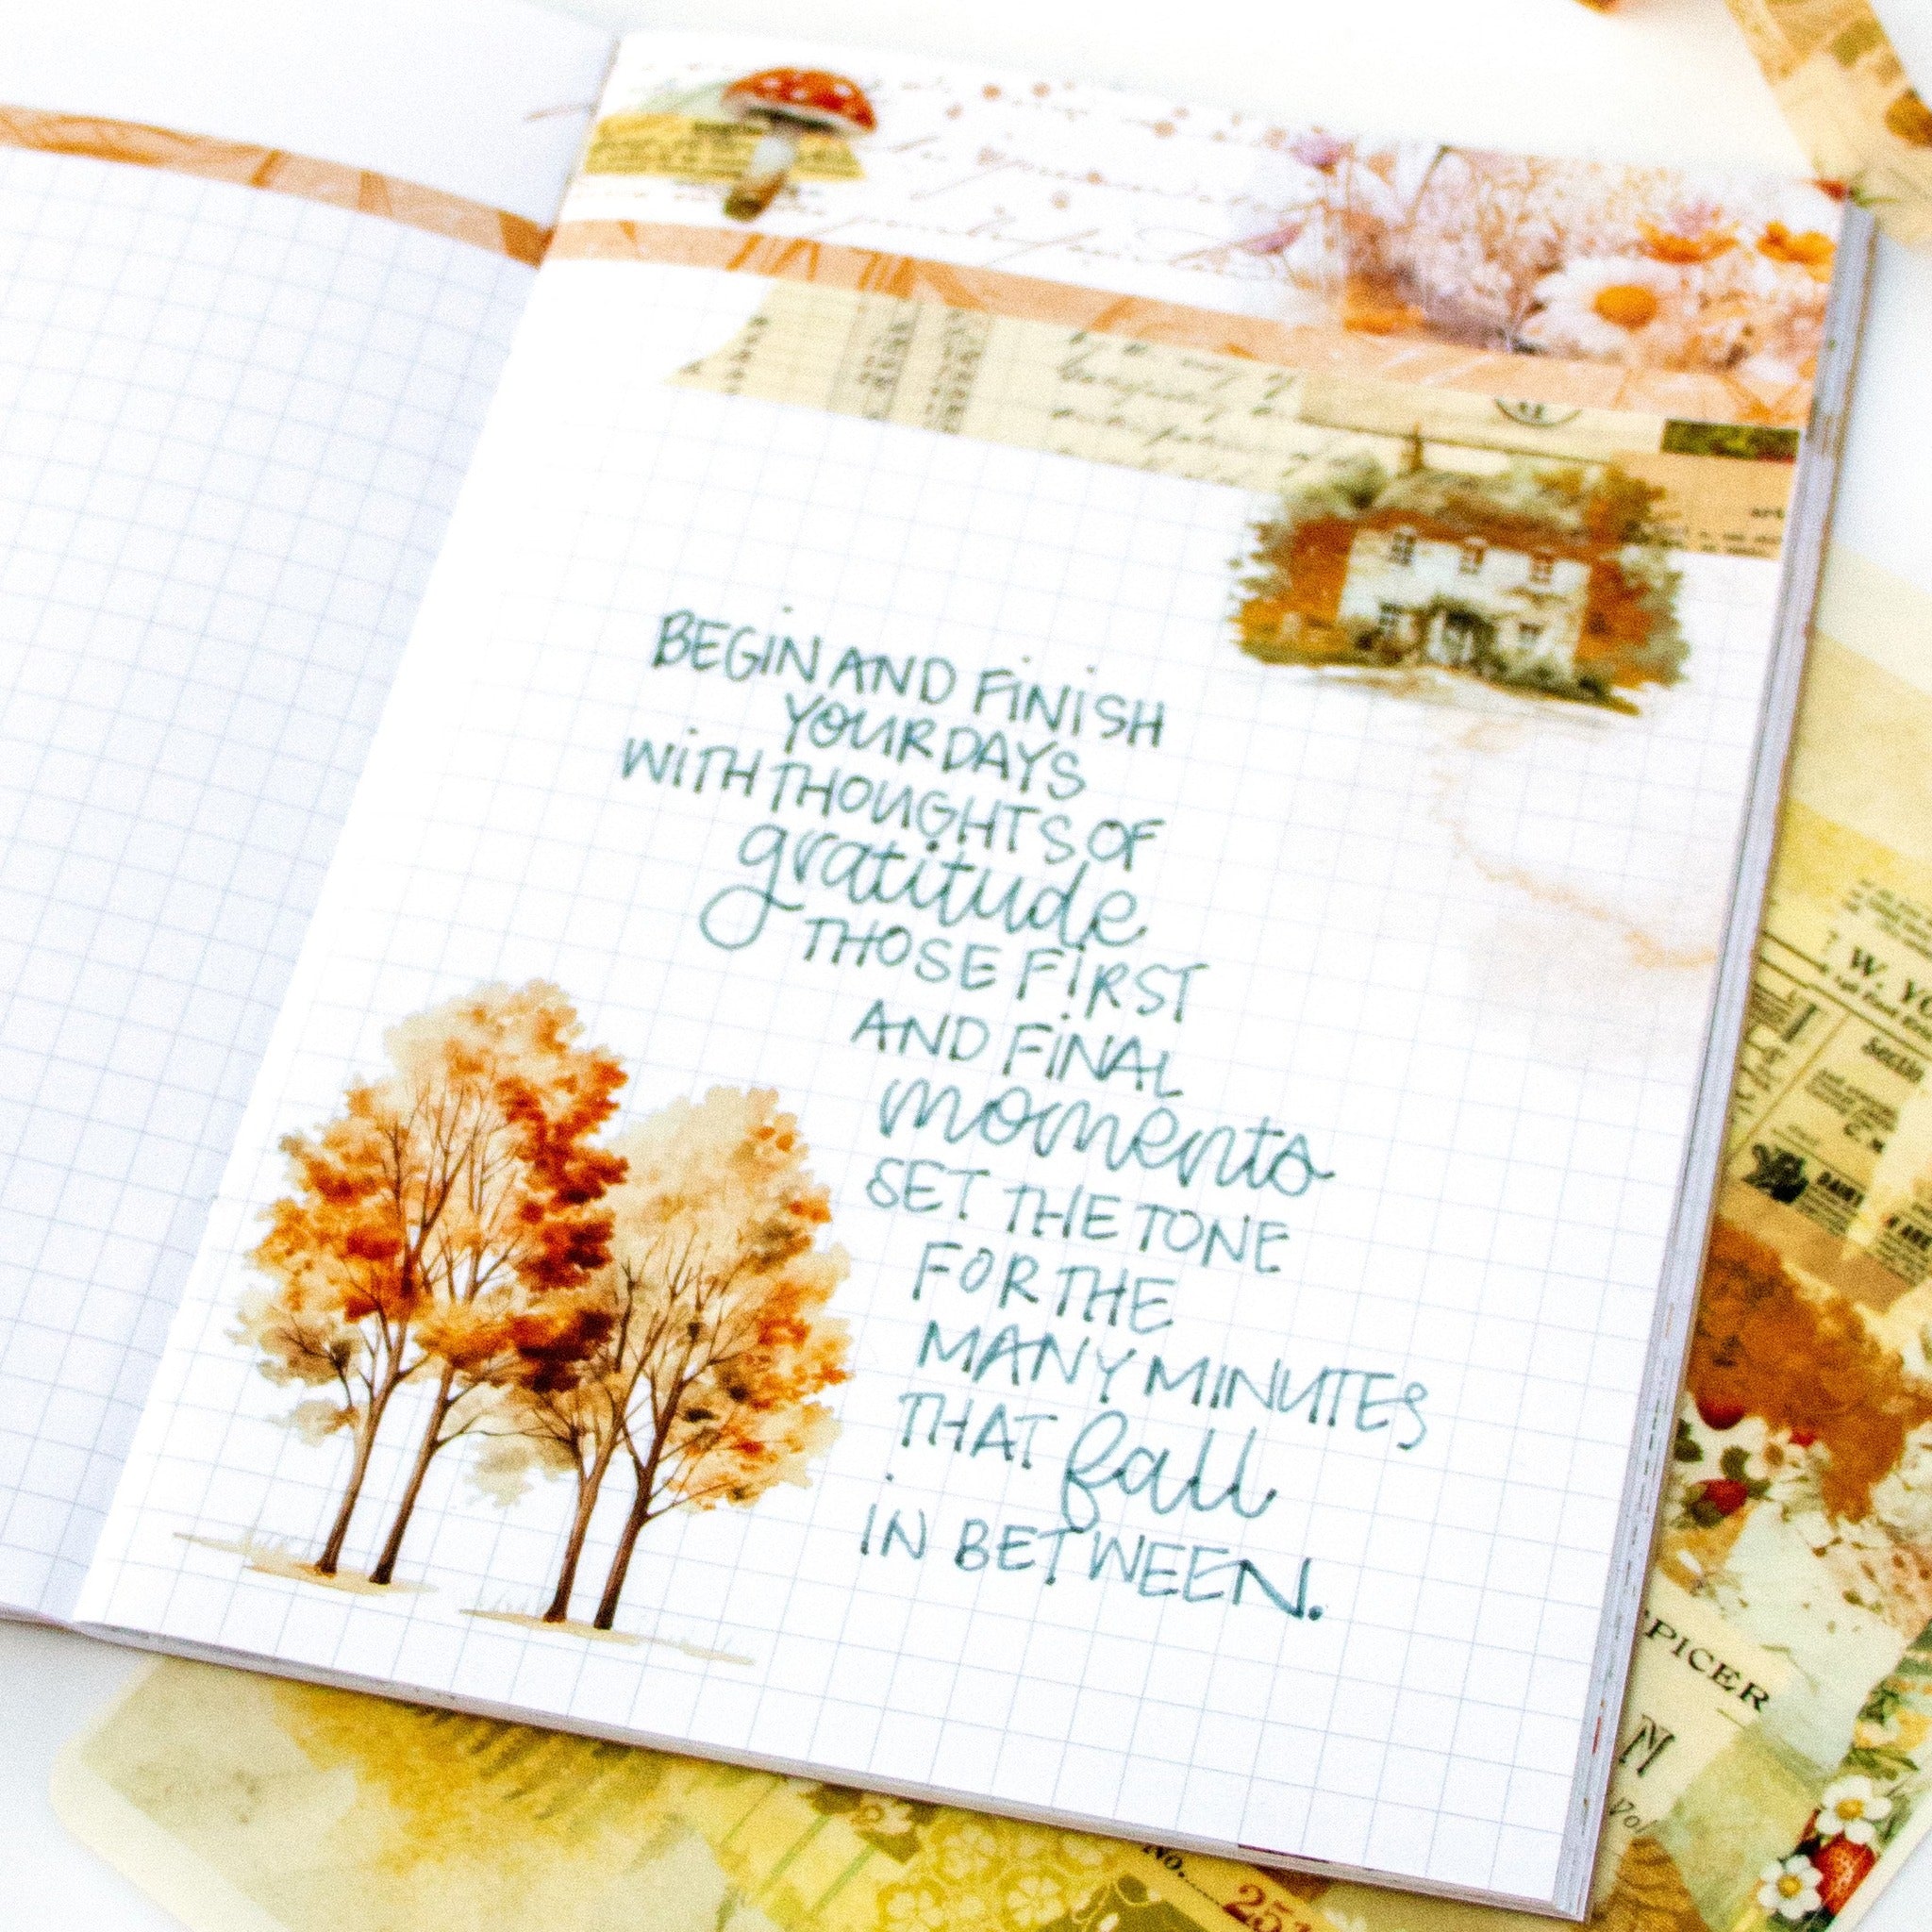 BEGIN AND FINISH
YOUR DAYS
WITH THOUGHTS OF
gratitude
THOSE FIRST
AND FINAL
moments
SET THE TONE
FOR THE
MANY MINUTES
THAT fall
IN BETWEEN.
art
W.
Section
DAIRY
PICER
N
Vol
No.
251